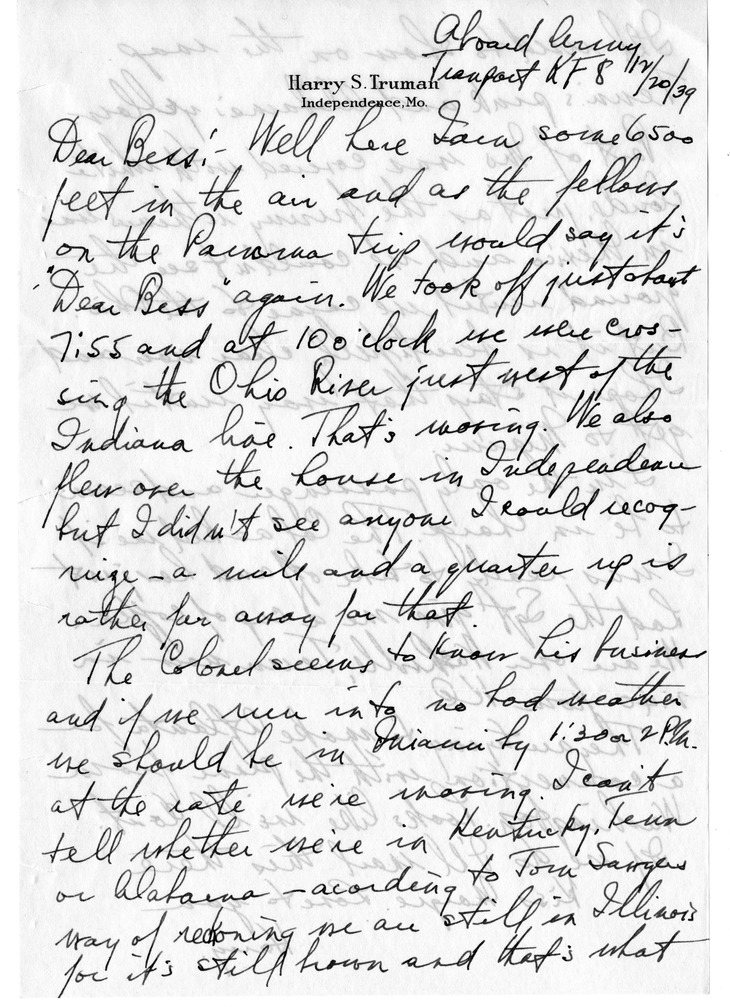 Aboard Army
Transport KF 8 12/20/39
Harry S. Truman
Independence, Mo.
Dear Bess:- Well here I am some 6500
feet in the air and as the fellows
on the Panama trip would say it's
"Dear Bess" again. We took off just about
7:55 and at 10 o'clock we were cros-
sing the Ohio River just west of the
Indiana line. That's moving. We also
flew over the house in Independence
but I didn't see anyone I could recog-
nize - a mile and a quarter up is
rather far away for that.
The Colonel seems to know his business
and if we run into no bad weather
we should be in Miami by 1:30 or 2 P.M.
at the rate we're moving. I can't
tell whether we're in Kentucky, Tenn
or Alabama - acording to Tom Sawyers
way of reckoning we are still in Illinois
for it's still brown and that's what